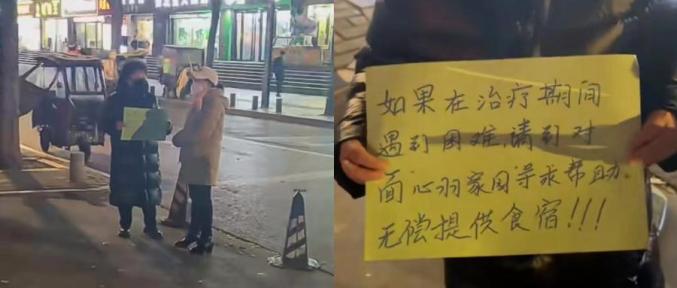 如果在治疗期间
遇到困难,请到对
面"心羽家园"寻求帮助.
无偿提供食宿!!!